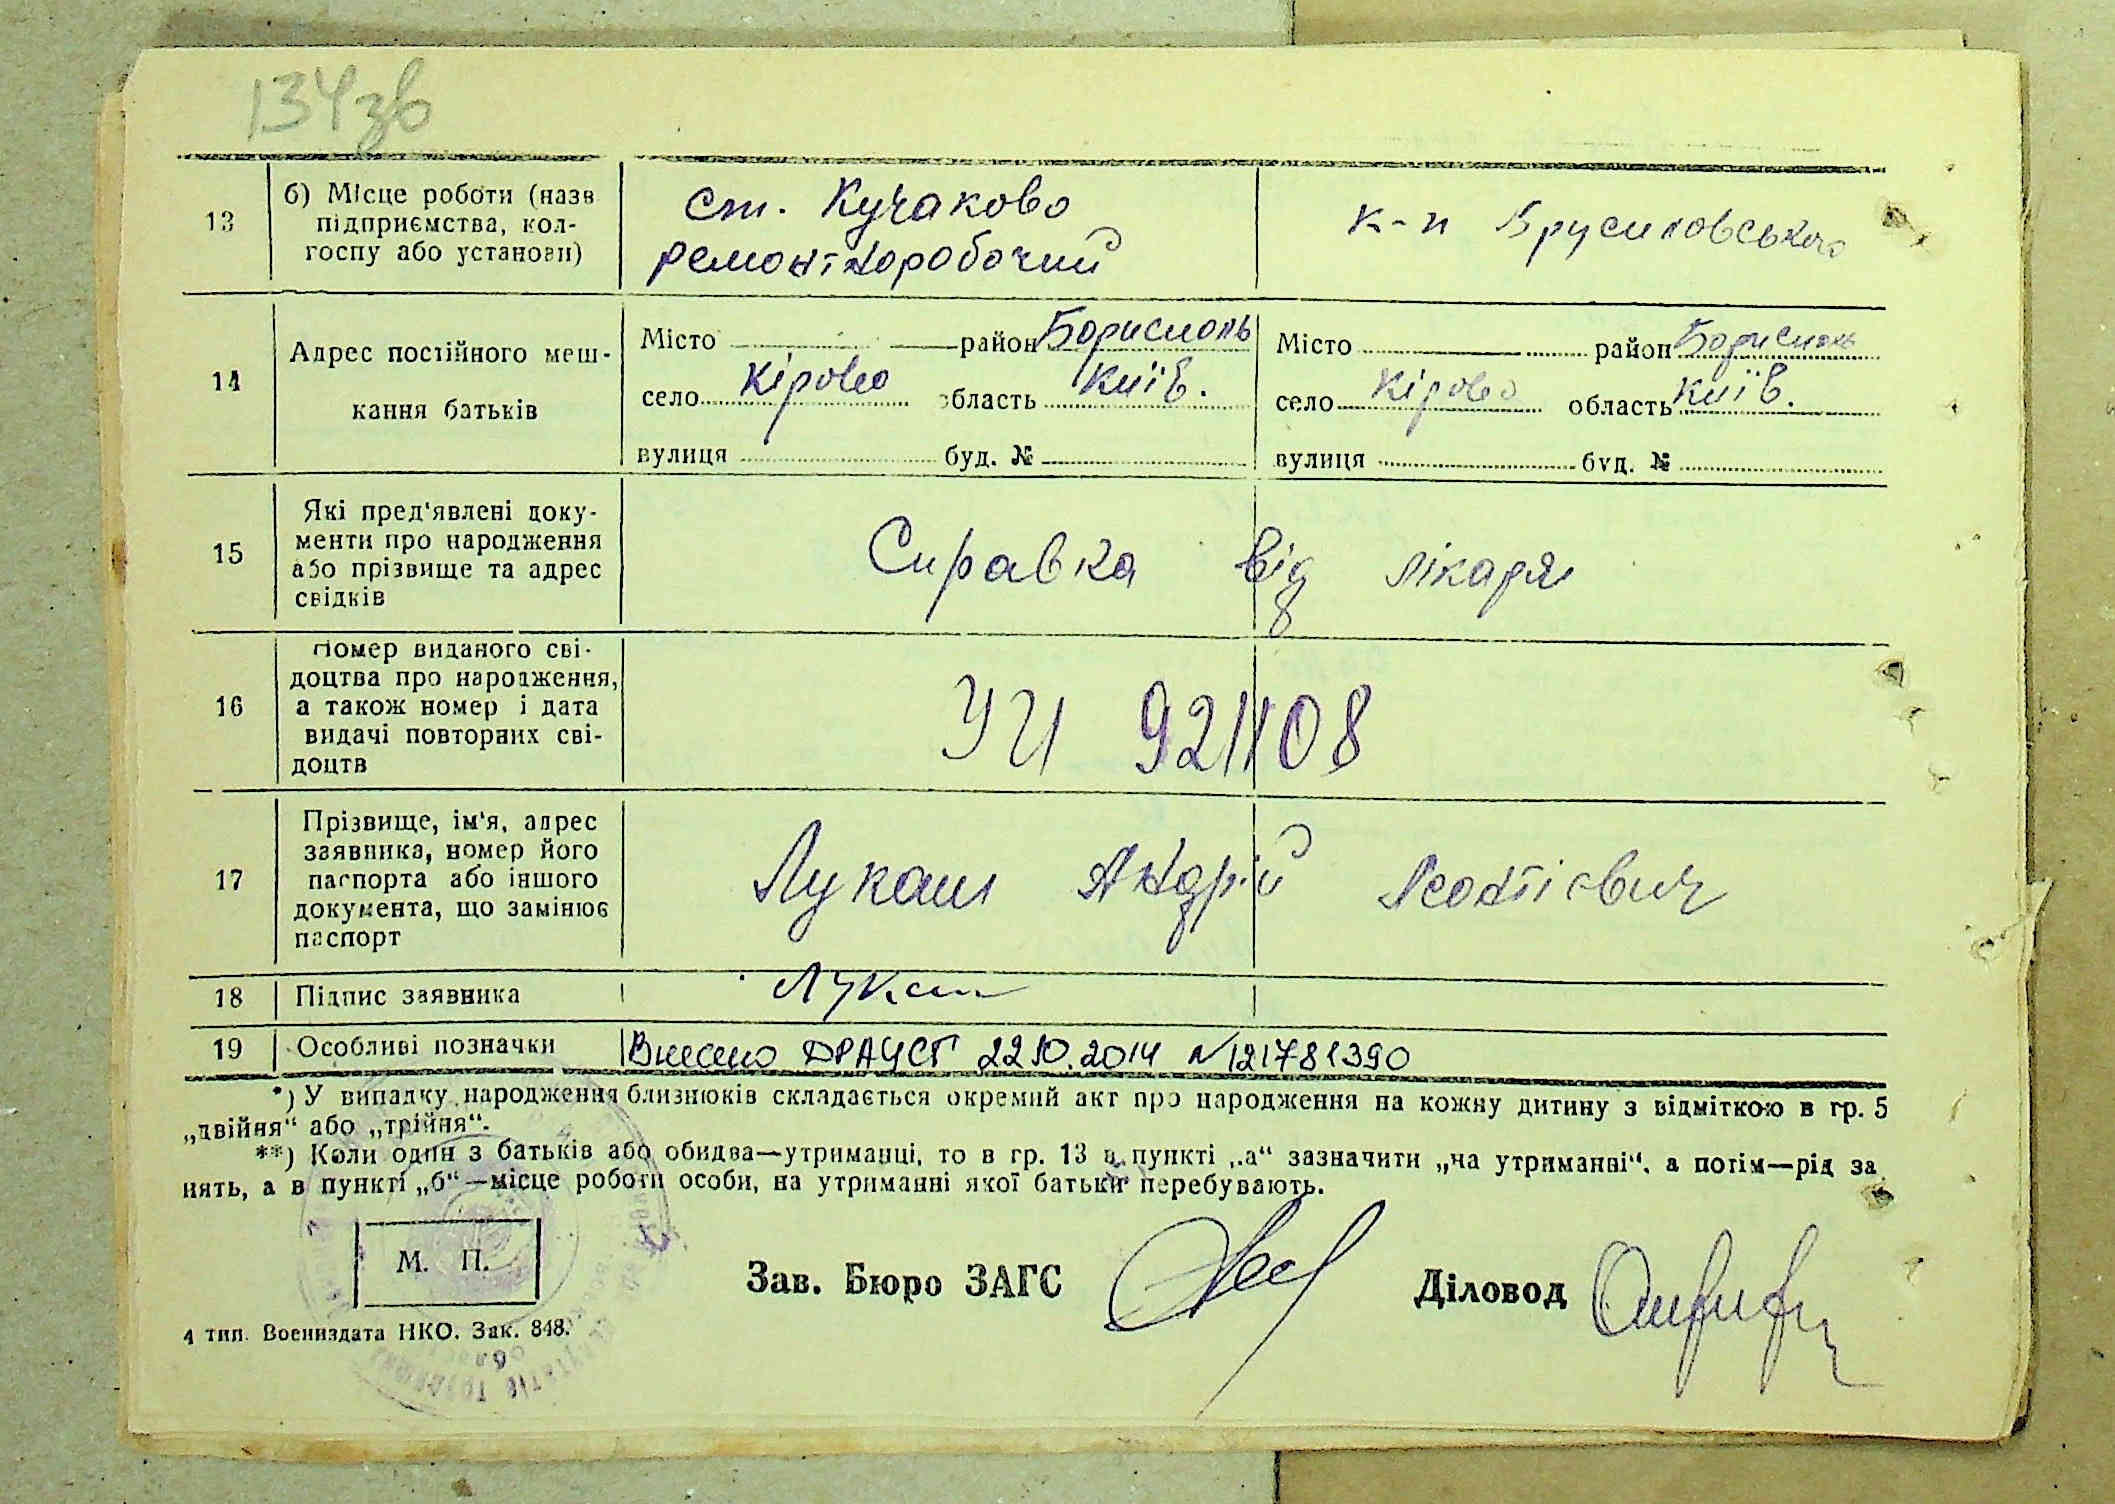 134зв
13
б) Місце роботи (назв
підприємства, кол-
госпу або установи)
ст. Кучаково
ремонтноробочий
к-п Брусиловського
14
Адрес постійного меш-
кання батьків
Місто район Борисполь
село Кірово область Київ.
вулиця буд. №
Місто район Бориспль
село Кірово область Київ.
вулиця буд. №
15
Які пред'явлені доку-
менти про народження
або прізвище та адрес
свідків
Справка від лікаря
16
Номер виданого сві-
доцтва про народження,
а також номер і дата
видачі повторних сві-
доцтв
УИ 921108
17
Прізвище, ім'я, адрес
заявника, номер його
паспорта або іншого
документа, що замінює
паспорт
Лукаш Андрій Леонтієвич
18
Підпис заявника
Лукаш
19
Особливі позначки
Внесено ДРАЦСГ 22.10.2014 №121781390
*) У випадку народження близнюків складається окремий акт про народження на кожну дитину з відміткою в гр. 5
„двійня“ або „трійня“.
**) Коли один з батьків або обидва—утриманці, то в гр. 13 в пункті „а“ зазначити „на утриманні“, а потім—рід за
нять, а в пункті „б“—місце роботи особи, на утриманні якої батьки перебувають.
М. П.
Зав. Бюро ЗАГС
Діловод
4 тип. Воениздата НКО. Зак. 848.